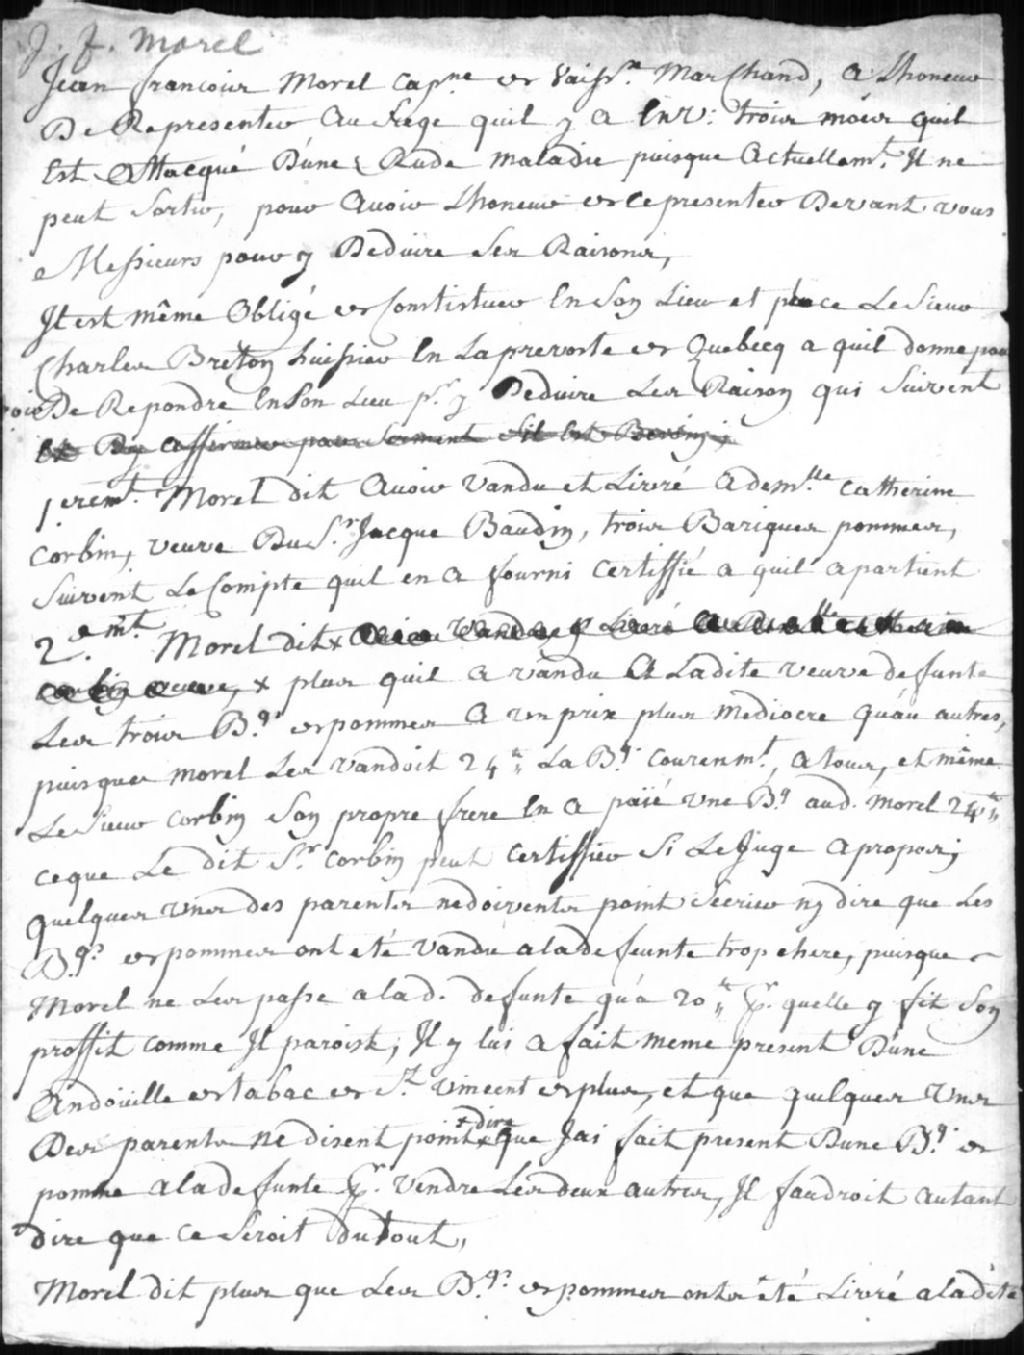 J. F. Morel
Jean francois Morel cap.ne de vaiss.au Marchand, a Lhoneur
De Representer au siege quil y a Env: trois mois quil
Est Attacqué D'une Rude maladie puisque Actuellem.t Il ne
peut sortir, pour avoir Lhoneur de ce presenter Devant vous
Messieurs pour y Deduire ses Raisons,
Il est même Obligé de Constistuer En son Lieu et place Le sieur
Charles Breton huissier En La prevoste de Quebecq a quil donne pou
voir De Repondre En son Lieu p.r y Deduire Les Raison qui suivent
Et Dy affirmer par serment sil Est Besoing
1.erem.t Morel dit avoir vandu et Livré a dem.lle catherine
corbin, veuve Du S.r Jacque Baudin, trois Bariques pommes,
suivent Le Compte quil en a fourni certiffié a quil apartient
2.emt Morel dit x
x plus quil a vandu a Ladite veuve defunte
Les trois B.qs de pommes a un prix plus mediocre qu'au autres,
puisques morel Les vandoit 24 tt La B.q courenm.t, a tous, et même
Le sieur corbin son propre frere En a païé une B.q aud. morel 24 tt
ce que Le dit S.r corbin peut certiffier si Le Juge apropos;
quelques unes des parentes ne doiventes point secrier ny dire que Les
B.qs de pommes ont eté vandu a la defeunte trop chere, puisque
Morel ne Les passe a la d. defunte qu'a 20 tt p.r quelle y fit son
proffit comme Il paroist; Il y lui a fait meme present D'une
Andoüille de tabac de S.t vincent de plus, et que quelques unes
Des parentes ne disent point x que Jai fait present Dune B.q de
+ dire
pomme a la defunte p.r vendre Les deux autres, Il faudroit autant
dire que ce seroit du tout,
Morel dit plus que Les B.qs de pommes ontes été Livré a la dite